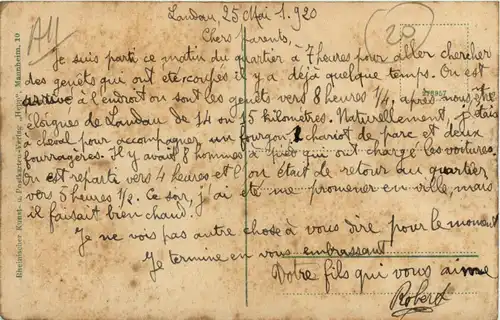 A11
20
Landau, 25 Mai 1.920
Chers parents,
Je suis parti ce matin du quartier à 7 heures pour aller chercher
des genêts qui ont été coupés il y a déjà quelque temps. On est
arrivé à l'endroit ou sont les genêts vers 8 heures 1/4, après nous être
éloignés de Landau de 14 ou 15 kilomètres. Naturellement, j'étais
à cheval pour accompagner un fourgon, 1 chariot de parc et deux
fourragères. Il y avait 8 hommes à pied qui ont chargé les voitures.
On est reparti vers 4 heures et l'on était de retour au quartier
vers 5 heures 1/2. Ce soir, j'ai été me promener en ville, mais
il faisait bien chaud.
Je ne vois pas autre chose à vous dire pour le moment
Je termine en vous embrassant
Votre fils qui vous aime
Robert
Rheinischer Kunst- u. Postkarten-Verlag "Hugo", Mannheim. 10